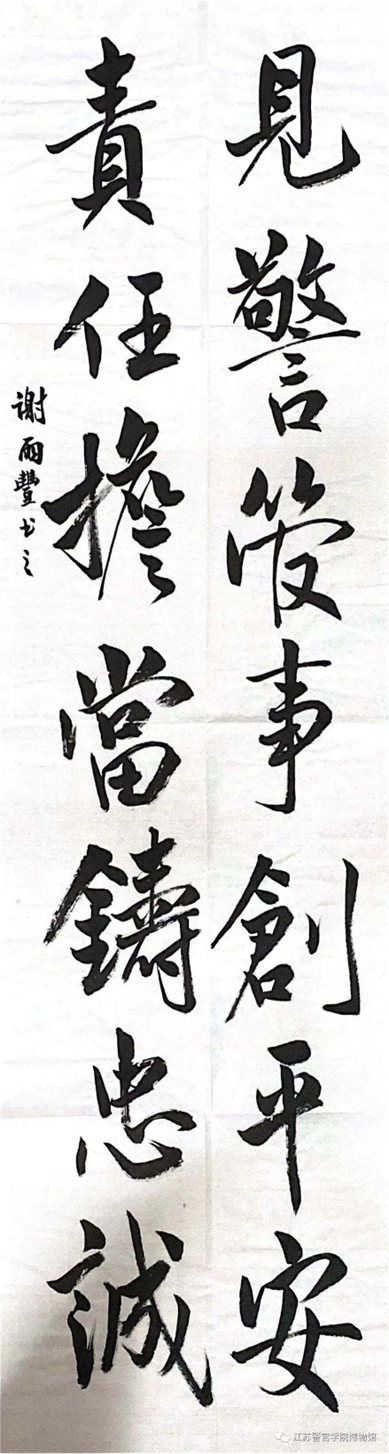 見警管事創平安
責任擔當鑄忠誠
谢雨豐书之
江苏警官学院博物馆